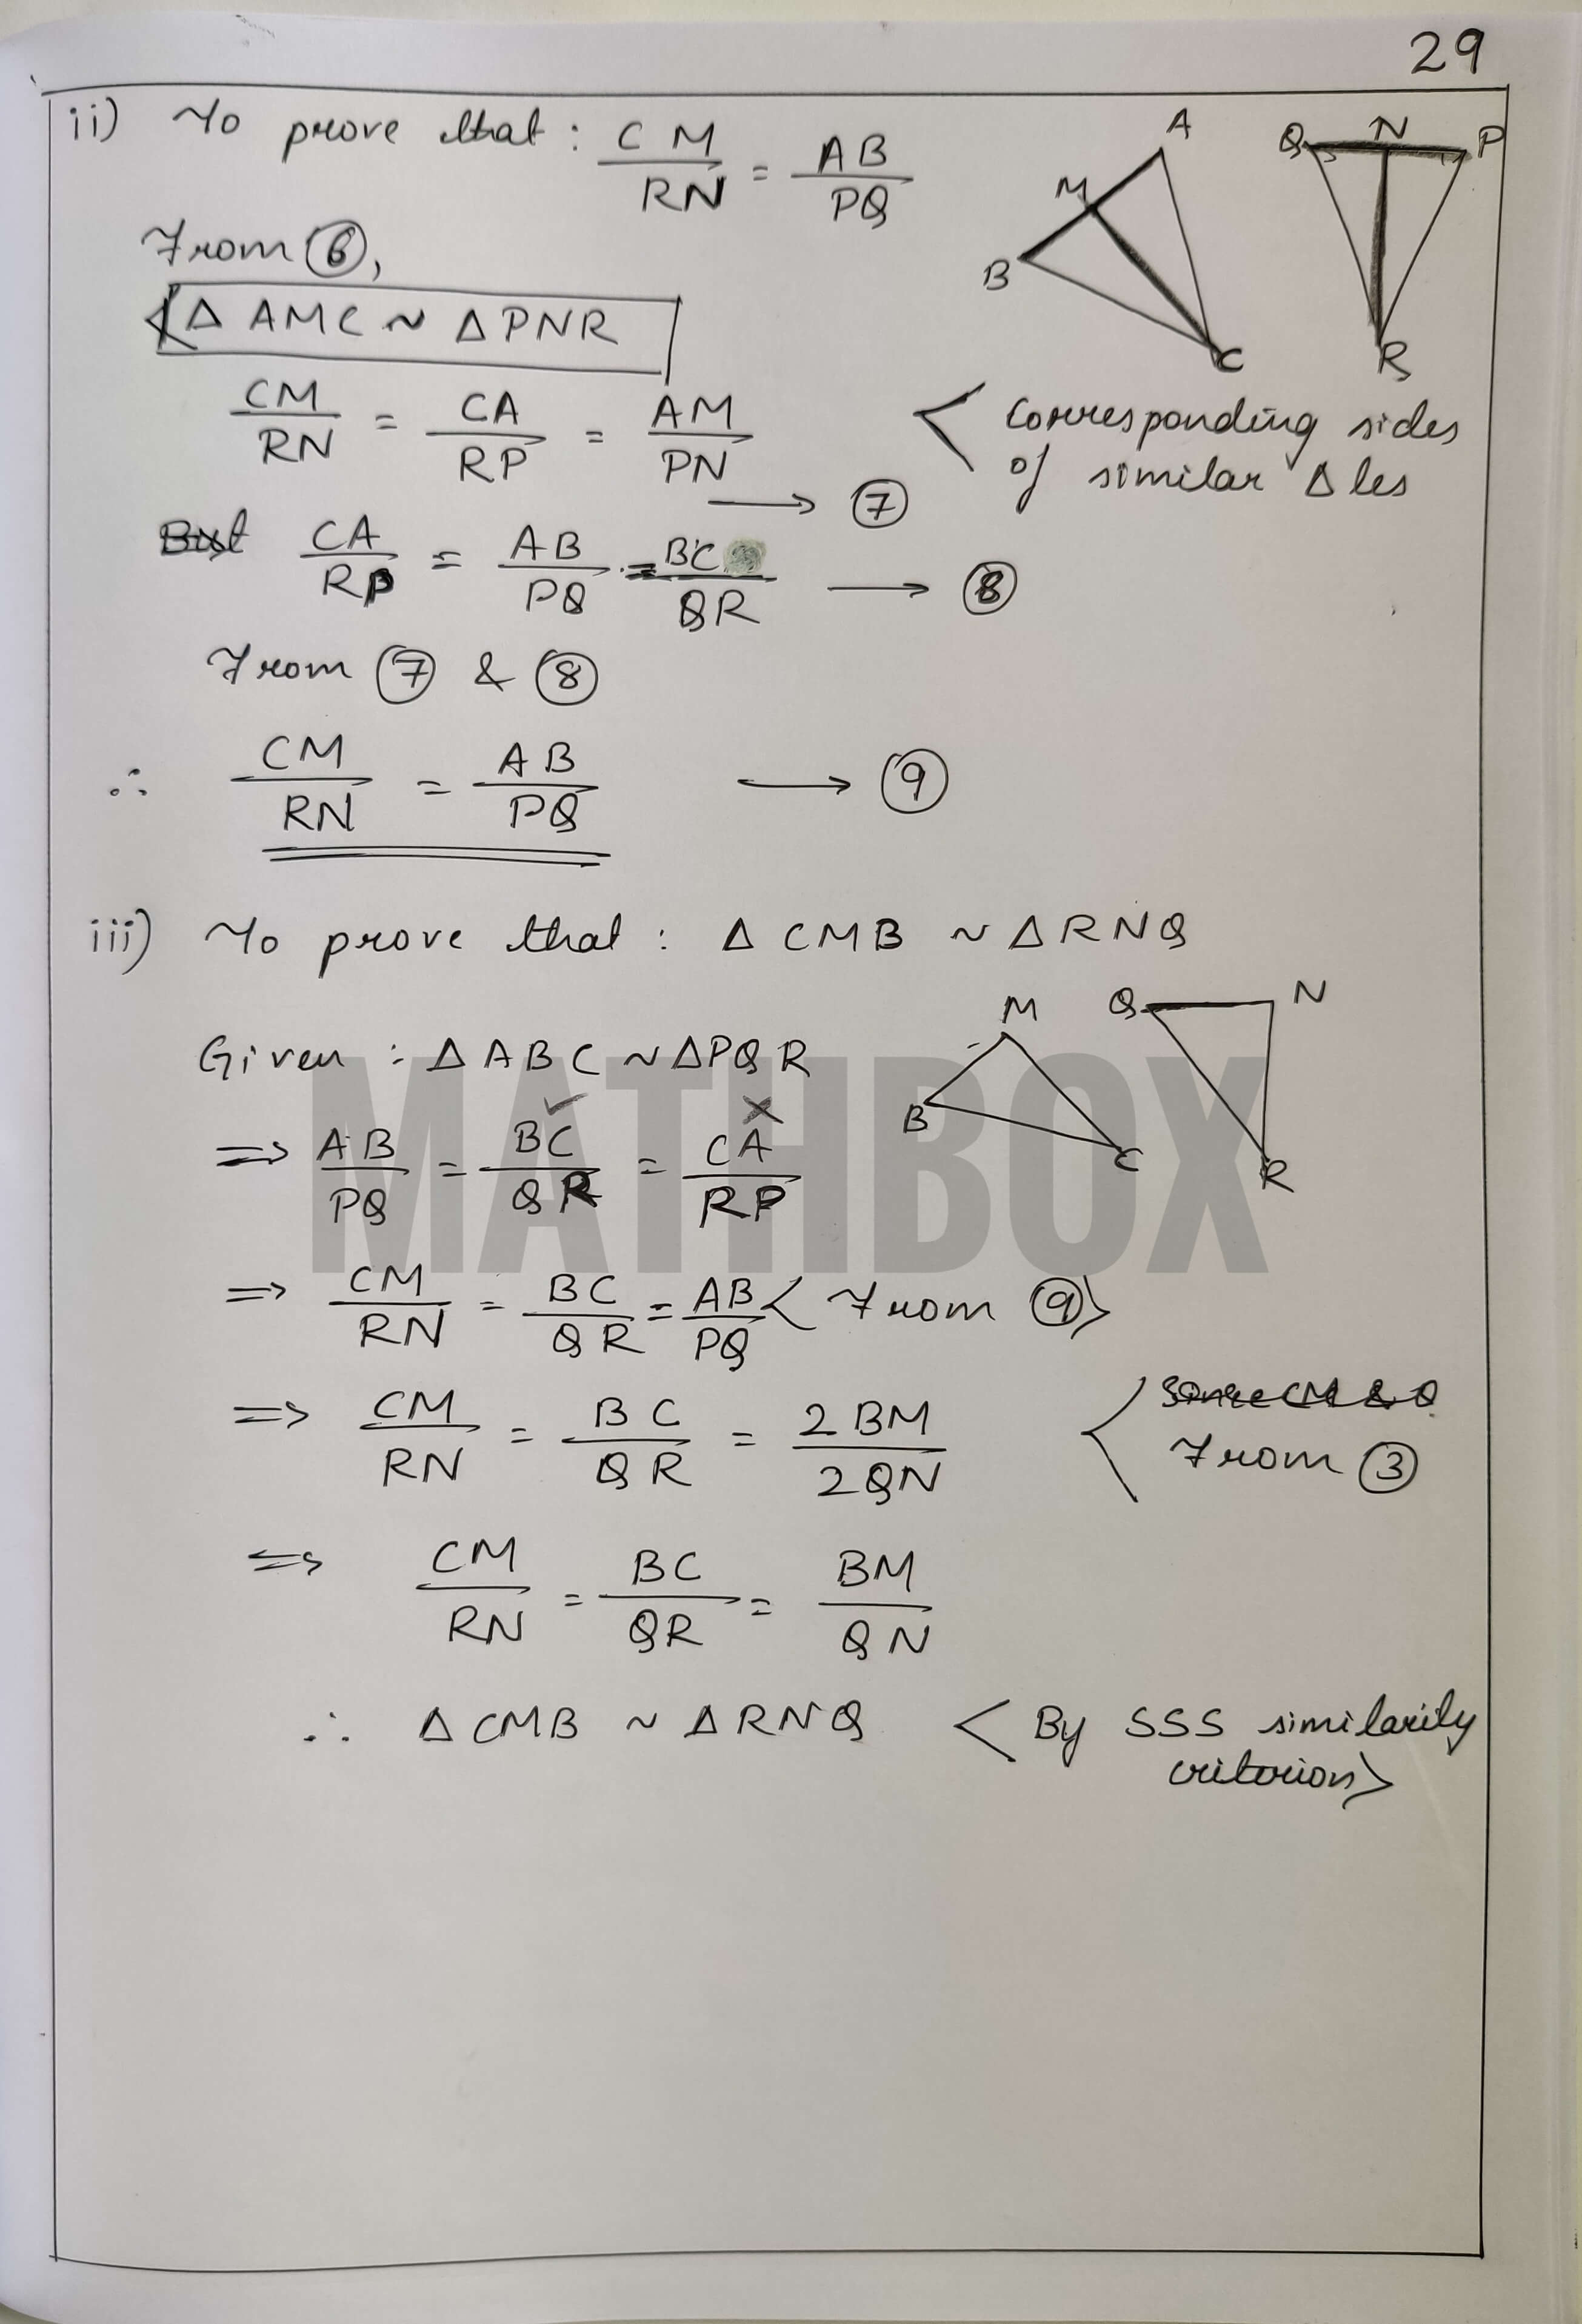 29
ii) To prove that : CM/RN = AB/PQ
A
M
B
C
Q N P
R
From ⑥,
< Δ AMC ~ Δ PNR
CM/RN = CA/RP = AM/PN < Corresponding sides
of similar Δ les
→ ⑦
But CA/RP = AB/PQ = BC/QR → ⑧
From ⑦ & ⑧
∴ CM/RN = AB/PQ → ⑨
iii) To prove that : Δ CMB ~ Δ RNQ
M
B
C
Q N
R
Given : Δ ABC ~ Δ PQR
✓ ×
⇒ AB/PQ = BC/QR = CA/RP
MATHBOX
⇒ CM/RN = BC/QR = AB/PQ < From ⑨ >
⇒ CM/RN = BC/QR = 2BM/2QN < Since CM & Q
From ③
⇒ CM/RN = BC/QR = BM/QN
∴ Δ CMB ~ Δ RNQ < By SSS similarity
criterion >